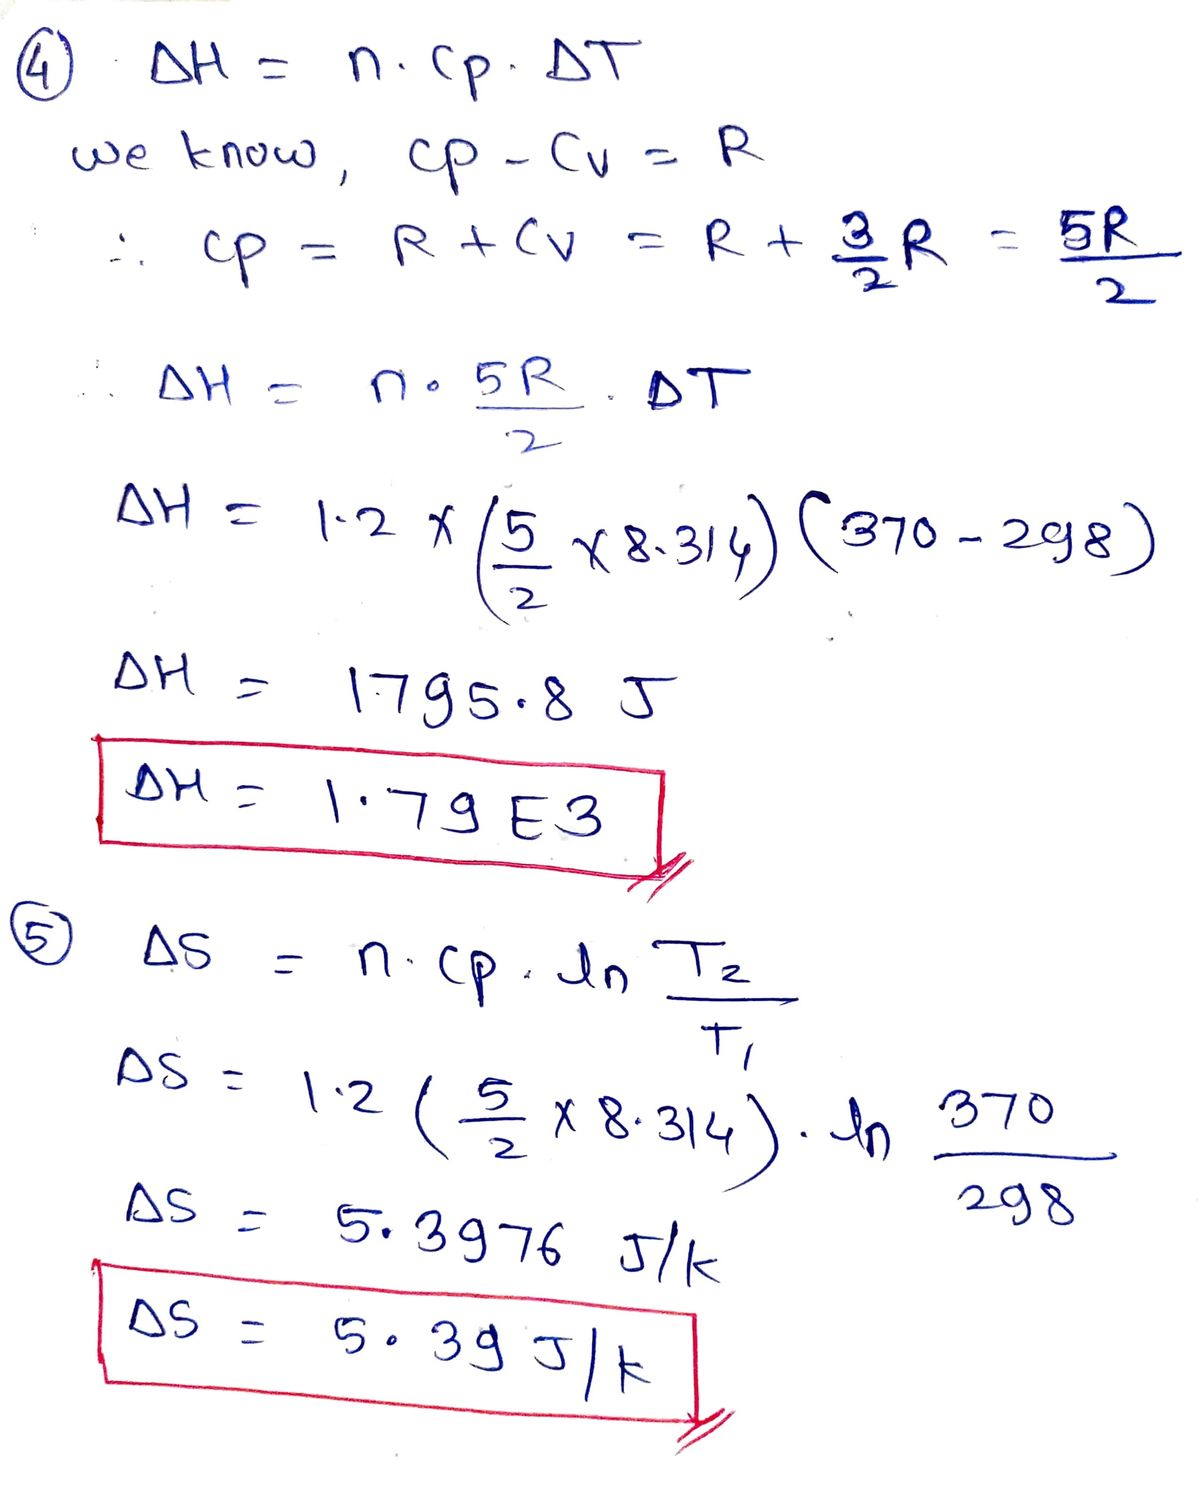 ④ ΔH = n. Cp. ΔT
we know, Cp - Cv = R
∴ Cp = R + Cv = R + 3/2 R = 5R/2
∴ ΔH = n. 5R/2 . ΔT
ΔH = 1.2 × (5/2 × 8.314) (370 - 298)
ΔH = 1795.8 J
ΔH = 1.79 E3
⑤ ΔS = n. Cp. ln T2/T1
ΔS = 1.2 (5/2 × 8.314). ln 370/298
ΔS = 5.3976 J/k
ΔS = 5.39 J/k